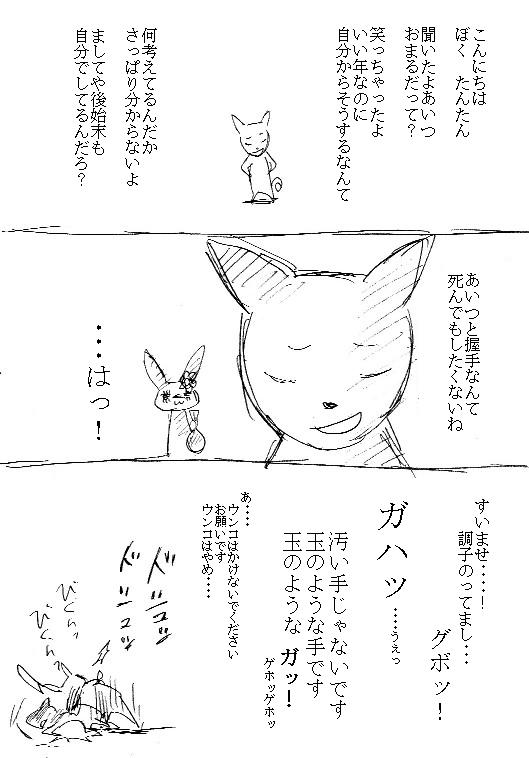 こんにちは
ぼく たんたん
聞いたよあいつ
おまるだって？
笑っちゃったよ
いい年なのに
自分からそうするなんて
何考えてるんだか
さっぱり分からないよ
ましてや後始末も
自分でしてるんだろ？
あいつと握手なんて
死んでもしたくないね
・・・はっ！
すいませ・・・・！
調子のってまし・・・
グボッ！
ガハッ
……うえっ
汚い手じゃないです
玉のような手です
玉のような ガッ！
ゲホッゲホッ
あ・・・・
ウンコはかけないでください
お願いです
ウンコはやめ・・・・
ドニュッ
ドニュッ
びくぅっ
びくぅっ